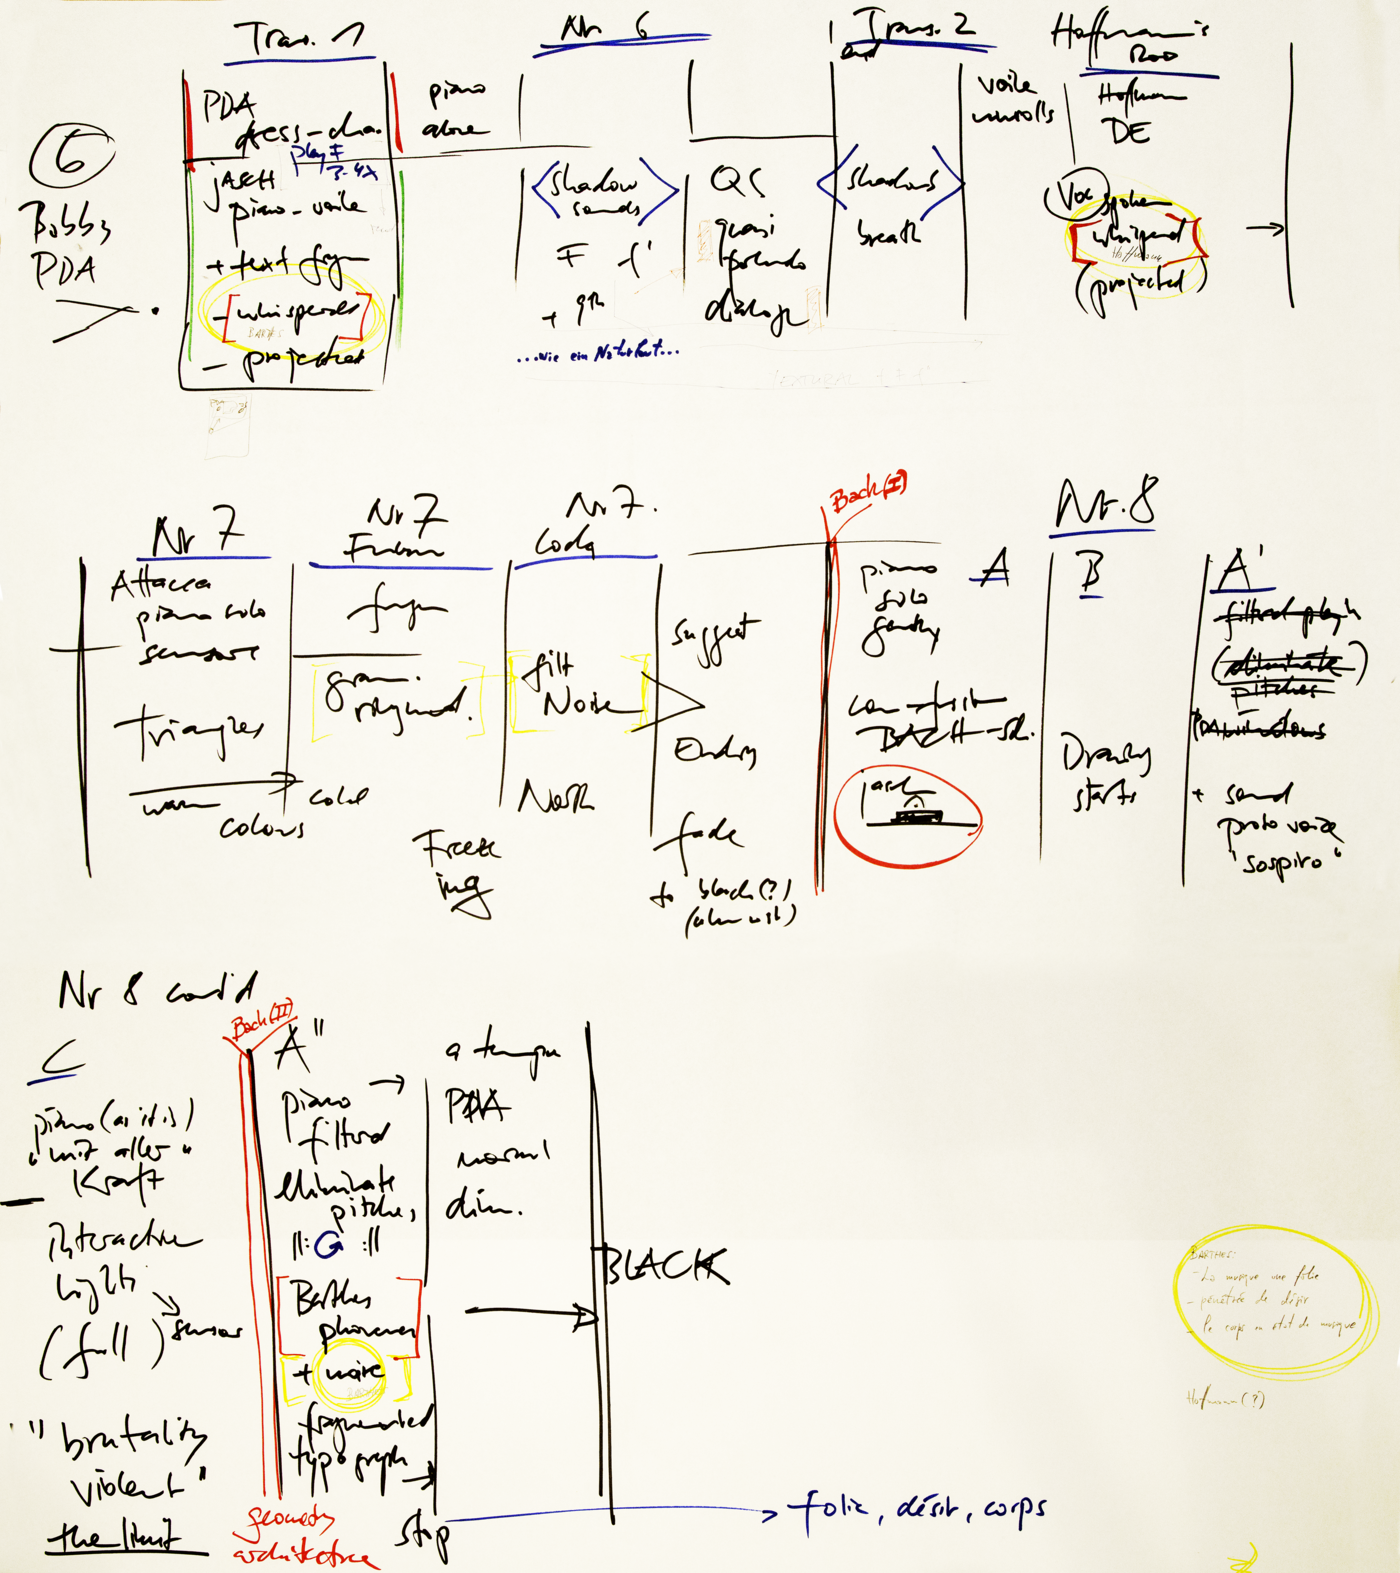 Trans. 1
Nr. 6
Trans. 2
Hoffmann's
6
Bobby
PDA
PDA
play F
3-4x
jASCH
piano-voile
+ text fragm
- [whispered]
BARTHES
- projected
piano
alone
shadow
sounds
F f'
+ 9th
...wie ein Naturlaut...
QS
quasi
pseudo
dialogue
shadows
breath
voile
unrolls
Hoffmann
DE
Voc spoken
[whispered]
Hoffmann
(projected)
Nr 7
Attacca
piano solo
sensors
triangles
warm
colours
cold
Nr 7
fragm
gran.
Freez
ing
Nr 7.
Coda
filt
Noise
North
suggest
Ending
fade
to black (?)
(almost)
Bach (I)
Nr. 8
A
piano
solo
BACH
jasch
B
Drawing
starts
A'
filtered
(eliminate)
pitches
PDA windows
+ sound
proto voice
"sospiro"
Nr 8 cont'd
C
piano (as it is)
"mit aller"
Kraft
Interactive
Lights
(full) sensor
"brutality
violent"
the limit
Bach (II)
A"
piano
filtered
eliminate
pitches,
||: G :||
Barthes
phonemes
+ noise
BARTHES
fragmented
typograph
geometry
architecture
stop
a tempo
PDA
normal
dim.
BLACK
folie, désir, corps
BARTHES:
- La musique une folie
- pénétrée de désir
- le corps en état de musique
Hoffmann (?)